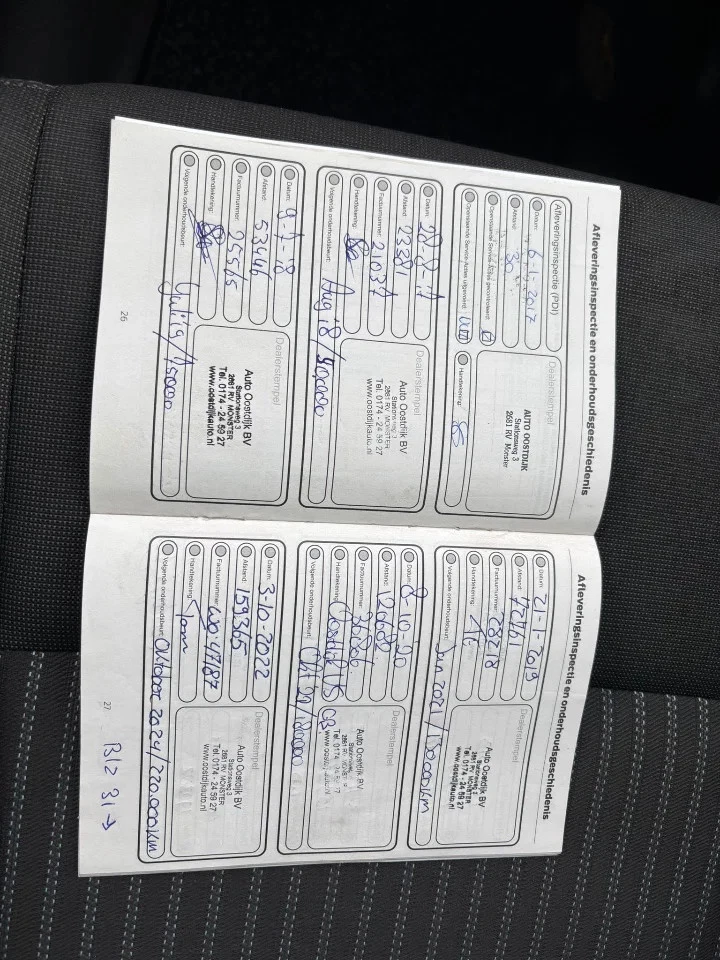 Afleveringsinspectie en onderhoudsgeschiedenis
Afleveringsinspectie (PDI)
Datum: 6-1-2017
Afstand: 30
Openstaande Service Acties gecontroleerd:
Openstaande Service Acties uitgevoerd:
Handtekening:
Dealerstempel
AUTO OOSTDIJK
Stationsweg 3
2681 RV Monster
Datum:
Afstand: 23381
Factuurnummer: 21037
Handtekening:
Volgende onderhoudsbeurt: Aug 18/
Dealerstempel
Auto Oostdijk BV
Stationsweg 3
2681 RV MONSTER
Tel. 0174 - 24 59 27
www.oostdijkauto.nl
Datum: 9-7-18
Afstand: 53446
Factuurnummer: 25565
Handtekening:
Volgende onderhoudsbeurt:
Dealerstempel
Auto Oostdijk BV
Stationsweg 3
2681 RV MONSTER
Tel. 0174 - 24 59 27
www.oostdijkauto.nl
26
Afleveringsinspectie en onderhoudsgeschiedenis
Datum: 21-1-2019
Afstand: 72761
Factuurnummer: 28278
Handtekening:
Volgende onderhoudsbeurt: Jan 2021/130.000km
Dealerstempel
Auto Oostdijk BV
Stationsweg 3
2681 RV MONSTER
Tel. 0174 - 24 59 27
www.oostdijkauto.nl
Datum: 8-10-20
Afstand: 120682
Factuurnummer:
Handtekening:
Volgende onderhoudsbeurt: Okt 22/180000
Dealerstempel
Auto Oostdijk BV
Stationsweg 3
2681 RV MONSTER
Datum: 3-10-2022
Afstand: 159365
Factuurnummer: WO-47187
Handtekening: Tom
Volgende onderhoudsbeurt: Oktober 2024/220.000km
Dealerstempel
Auto Oostdijk BV
Stationsweg 3
2681 RV MONSTER
Tel. 0174 - 24 59 27
www.oostdijkauto.nl
27
Blz 31 →